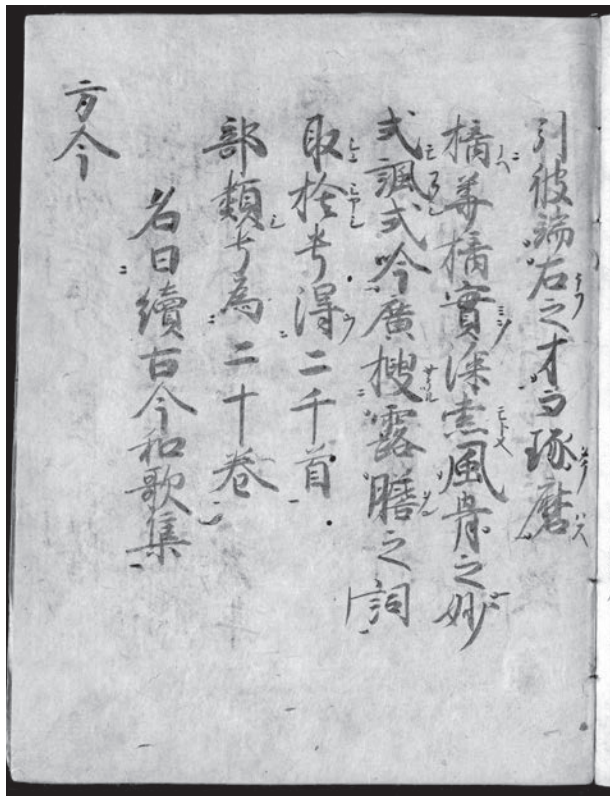 引彼端右之才琢磨
摘華摘實深索風骨之妙
式諷式吟廣搜露膽之詞
取捨兮得二千首
部類兮為二十卷
名曰續古今和歌集
方今